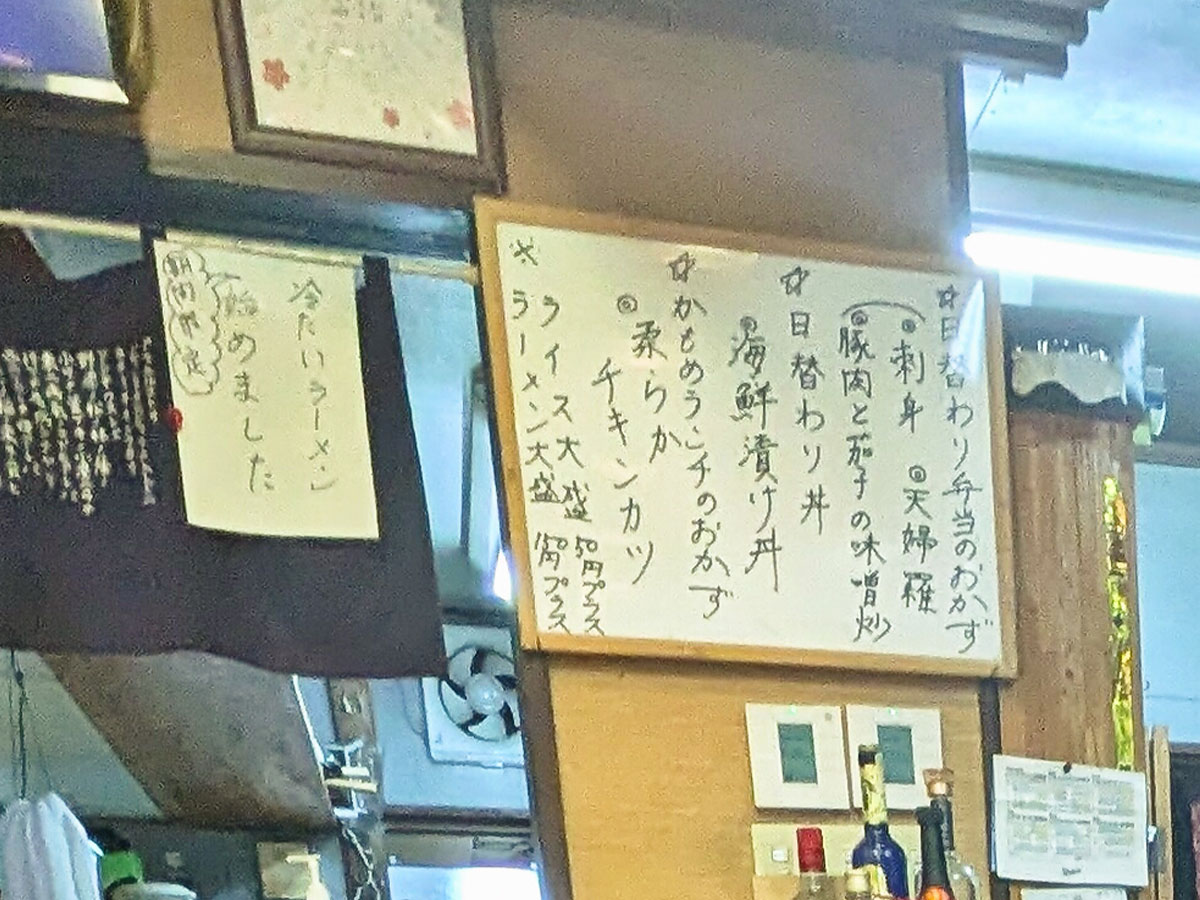 ☆日替わり弁当のおかず
◎刺身 ◎天婦羅
◎豚肉と茄子の味噌炒
☆日替わり丼
◎海鮮漬け丼
☆かもめランチのおかず
◎柔らか
チキンカツ
※ライス大盛 50円プラス
ラーメン大盛 150円プラス
冷たいラーメン
始めました
期間限定